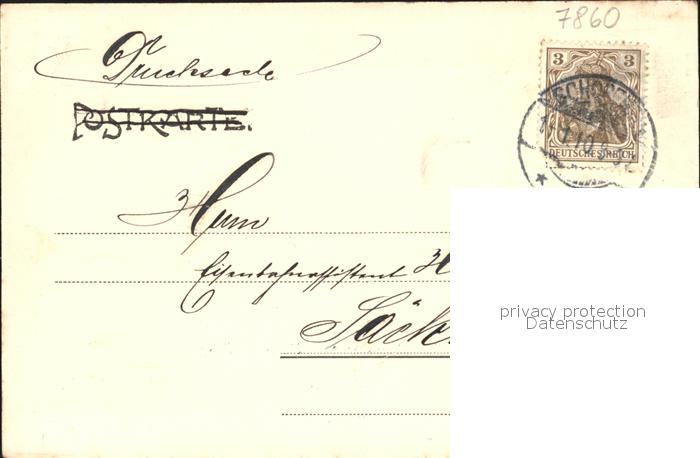 7860
Drucksache
POSTKARTE.
3
3
SCHOPF
1.10.8
DEUTSCHES REICH
Herrn
Eisenbahnassistent H
Säck
privacy protection
Datenschutz